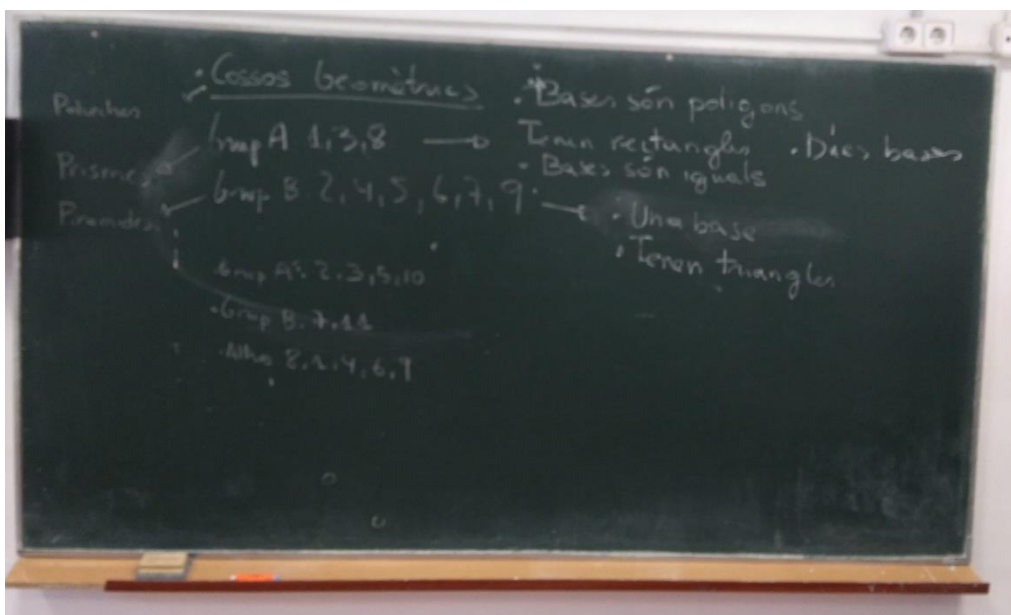 · Cossos Geomètrics
Poliedres
Prismes
Piràmides
Grup A 1,3,8
Grup B. 2, 4, 5, 6, 7, 9
· Bases són polígons
Tenen rectangles · Dues bases
· Bases són iguals
· Una base
· Tenen triangles
Grup A: 2, 3, 5, 10
· Grup B. 7, 11
8, 1, 4, 6, 9